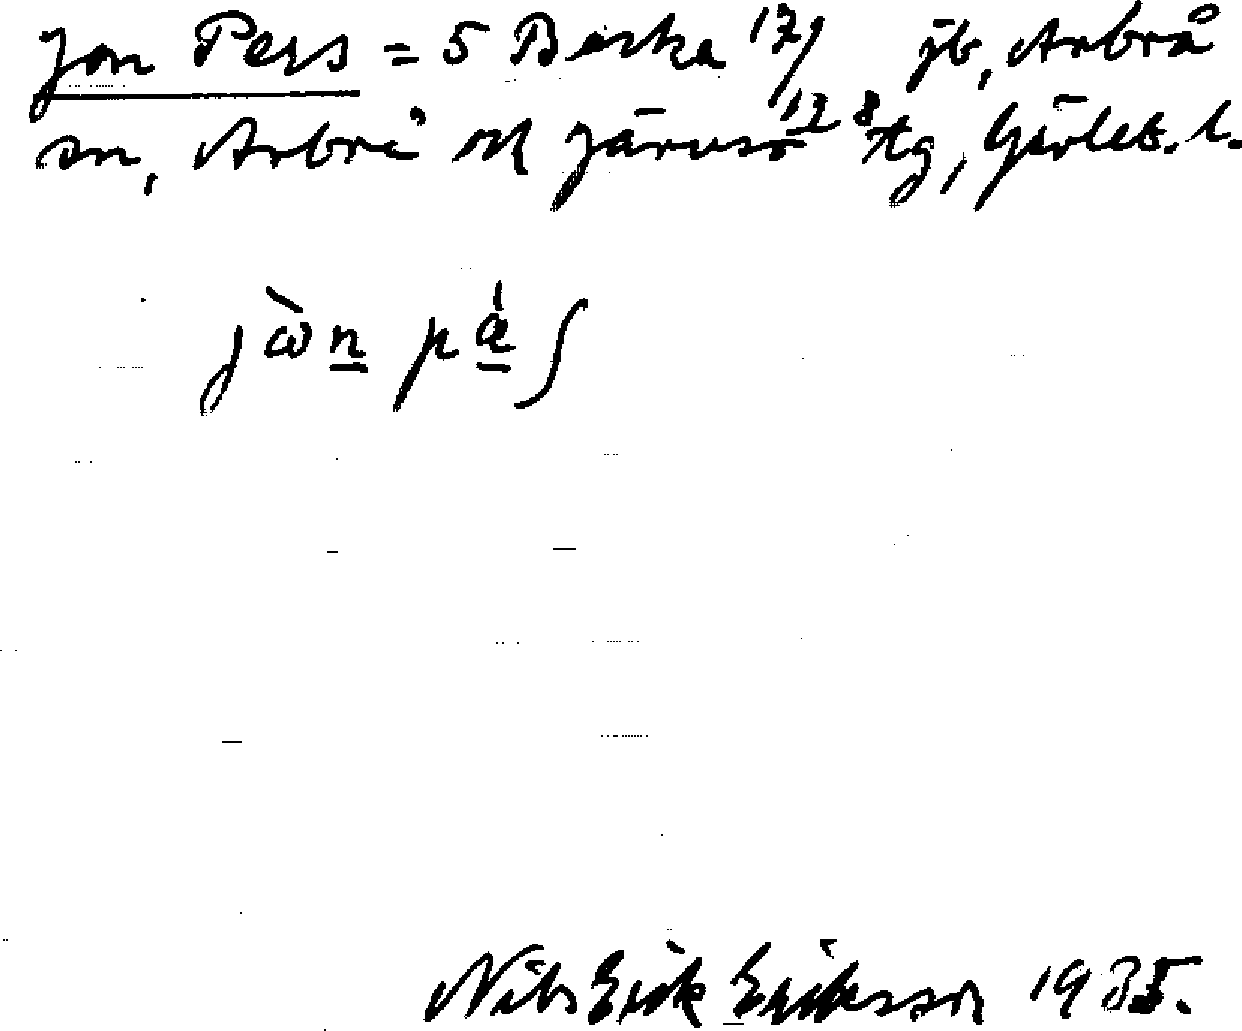 Jon Pers = 5 Berka 17/128 jb, Arbrå
sn, Arbrå och Järvsö tg, Gävleb. l.
jὼn pǽʃ
Nils Erik Eriksson 1935.